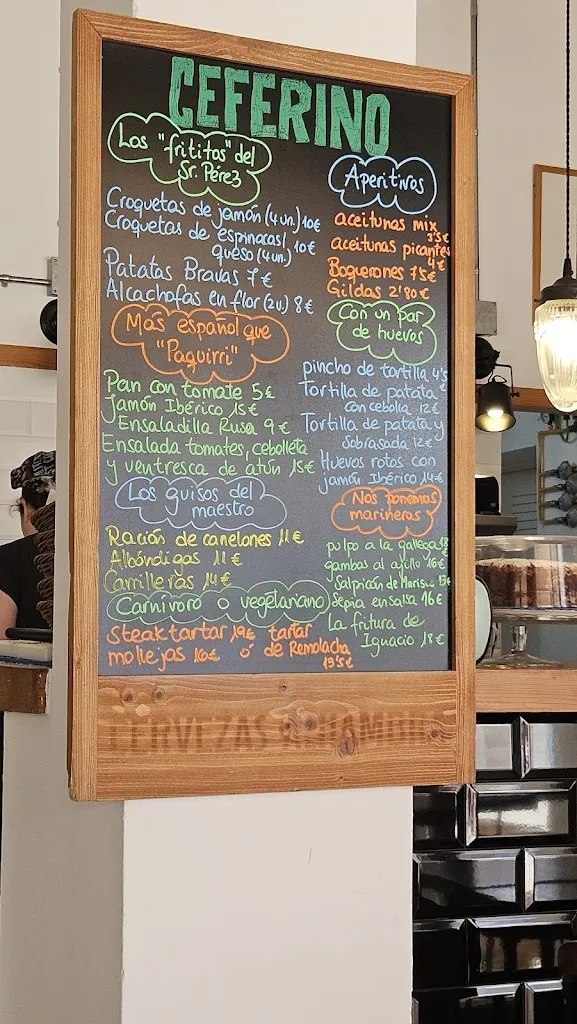 CEFERINO
Los "frititos" del
Sr. Pérez
Croquetas de jamón (4 un.) 10€
Croquetas de espinacas/, 10€
queso (4 un.)
Patatas Bravas 7€
Alcachofas en flor (2u) 8€
Más español que
"Paquirri"
Pan con tomate 5€
Jamón Ibérico 15€
Ensaladilla Rusa 9€
Ensalada tomates, cebolleta
y ventresca de atún 15€
Los guisos del
maestro
Ración de canelones 11€
Albóndigas 11€
Carrilleras 14€
Carnívoro o vegetariano
Steak tartar 19€ tartar
mollejas 16€ ó de Remolacha
13'5€
Aperitivos
aceitunas mix
3'5€
aceitunas picantes
4€
Boquerones 7'5€
Gildas 2'80€
Con un par
de huevos
pincho de tortilla 4'5
€
Tortilla de patata
con cebolla 12€
Tortilla de patata y
Sobrasada 12€
Huevos rotos con
jamón Ibérico 14€
Nos ponemos
marineros
pulpo a la gallega 18
€
gambas al ajillo 16€
Salpicón de Maris..
Sepia en salsa 16€
La fritura de
Ignacio 18€
CERVEZAS ALHAMBRA